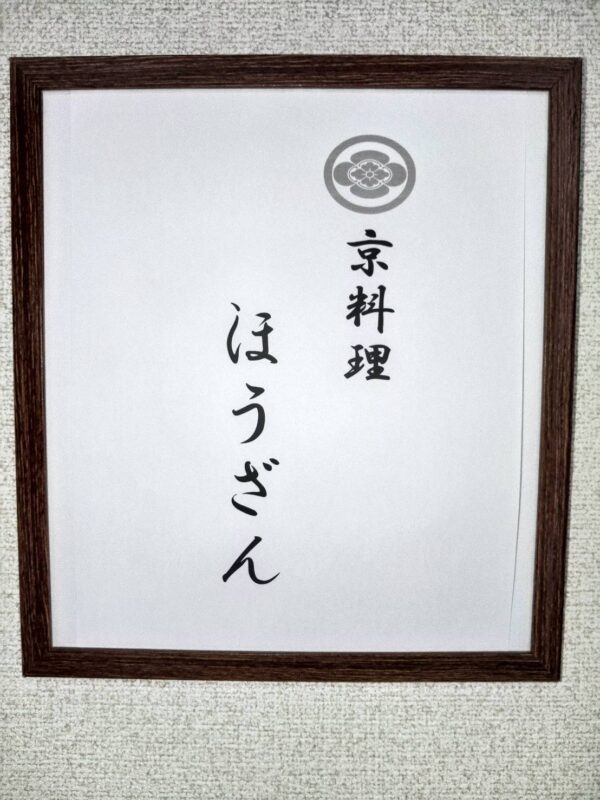 京料理
ほうざん